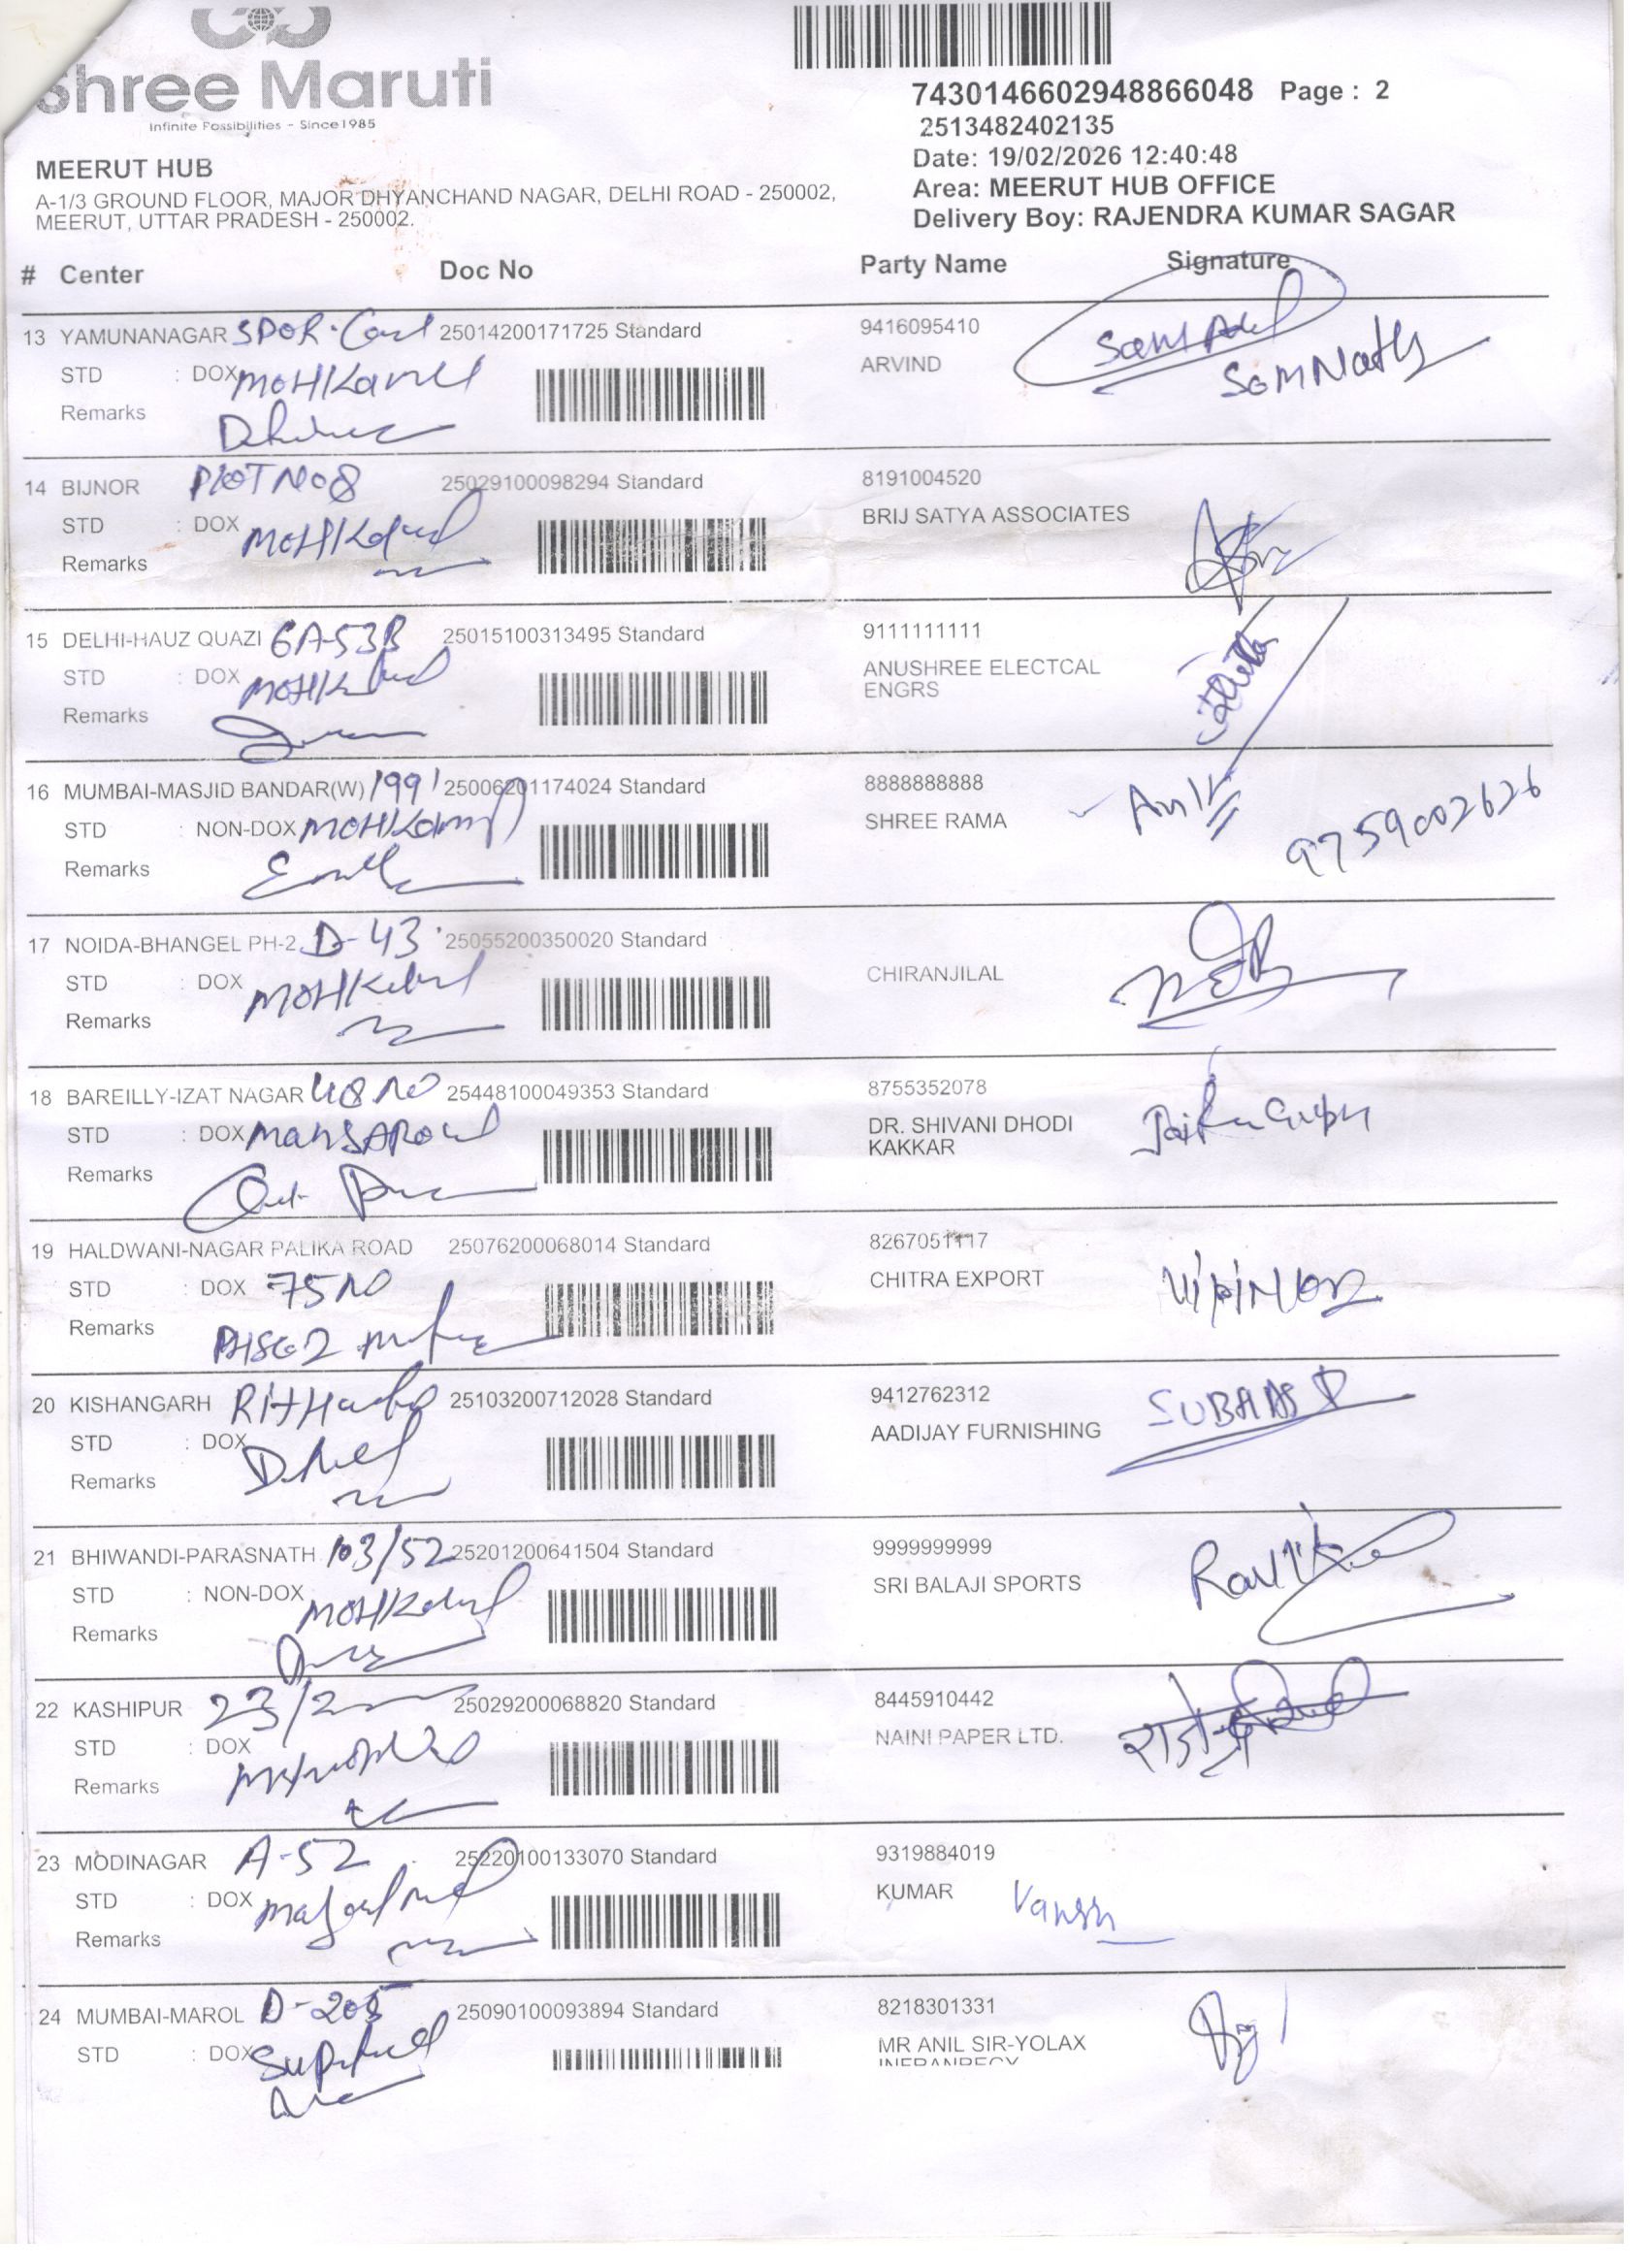 Shree Maruti
Infinite Possibilities - Since1985
7430146602948866048 Page : 2
2513482402135
Date: 19/02/2026 12:40:48
Area: MEERUT HUB OFFICE
Delivery Boy: RAJENDRA KUMAR SAGAR
MEERUT HUB
A-1/3 GROUND FLOOR, MAJOR DHYANCHAND NAGAR, DELHI ROAD - 250002,
MEERUT, UTTAR PRADESH - 250002.
# Center Doc No Party Name Signature
13 YAMUNANAGAR 25014200171725 Standard 9416095410
STD : DOX ARVIND SomNath
Remarks
14 BIJNOR PLOT NO 8 25029100098294 Standard 8191004520
STD : DOX BRIJ SATYA ASSOCIATES
Remarks
15 DELHI-HAUZ QUAZI 6A-53B 25015100313495 Standard 9111111111
STD : DOX ANUSHREE ELECTCAL
ENGRS
Remarks
16 MUMBAI-MASJID BANDAR(W) 199 25006201174024 Standard 8888888888
STD : NON-DOX SHREE RAMA Anil 9759002626
Remarks
17 NOIDA-BHANGEL PH-2 D-43 25055200350020 Standard
STD : DOX CHIRANJILAL
Remarks
18 BAREILLY-IZAT NAGAR 48 NO 25448100049353 Standard 8755352078
STD : DOX DR. SHIVANI DHODI
KAKKAR
Remarks
19 HALDWANI-NAGAR PALIKA ROAD 25076200068014 Standard 8267051117
STD : DOX 75 NO CHITRA EXPORT
Remarks
20 KISHANGARH 25103200712028 Standard 9412762312
STD : DOX AADIJAY FURNISHING SUBHAS
Remarks
21 BHIWANDI-PARASNATH 103/52 25201200641504 Standard 9999999999
STD : NON-DOX SRI BALAJI SPORTS
Remarks
22 KASHIPUR 23/2 25029200068820 Standard 8445910442
STD : DOX NAINI PAPER LTD.
Remarks
23 MODINAGAR A-52 25220100133070 Standard 9319884019
STD : DOX KUMAR Vansh
Remarks
24 MUMBAI-MAROL D-205 25090100093894 Standard 8218301331
STD : DOX MR ANIL SIR-YOLAX